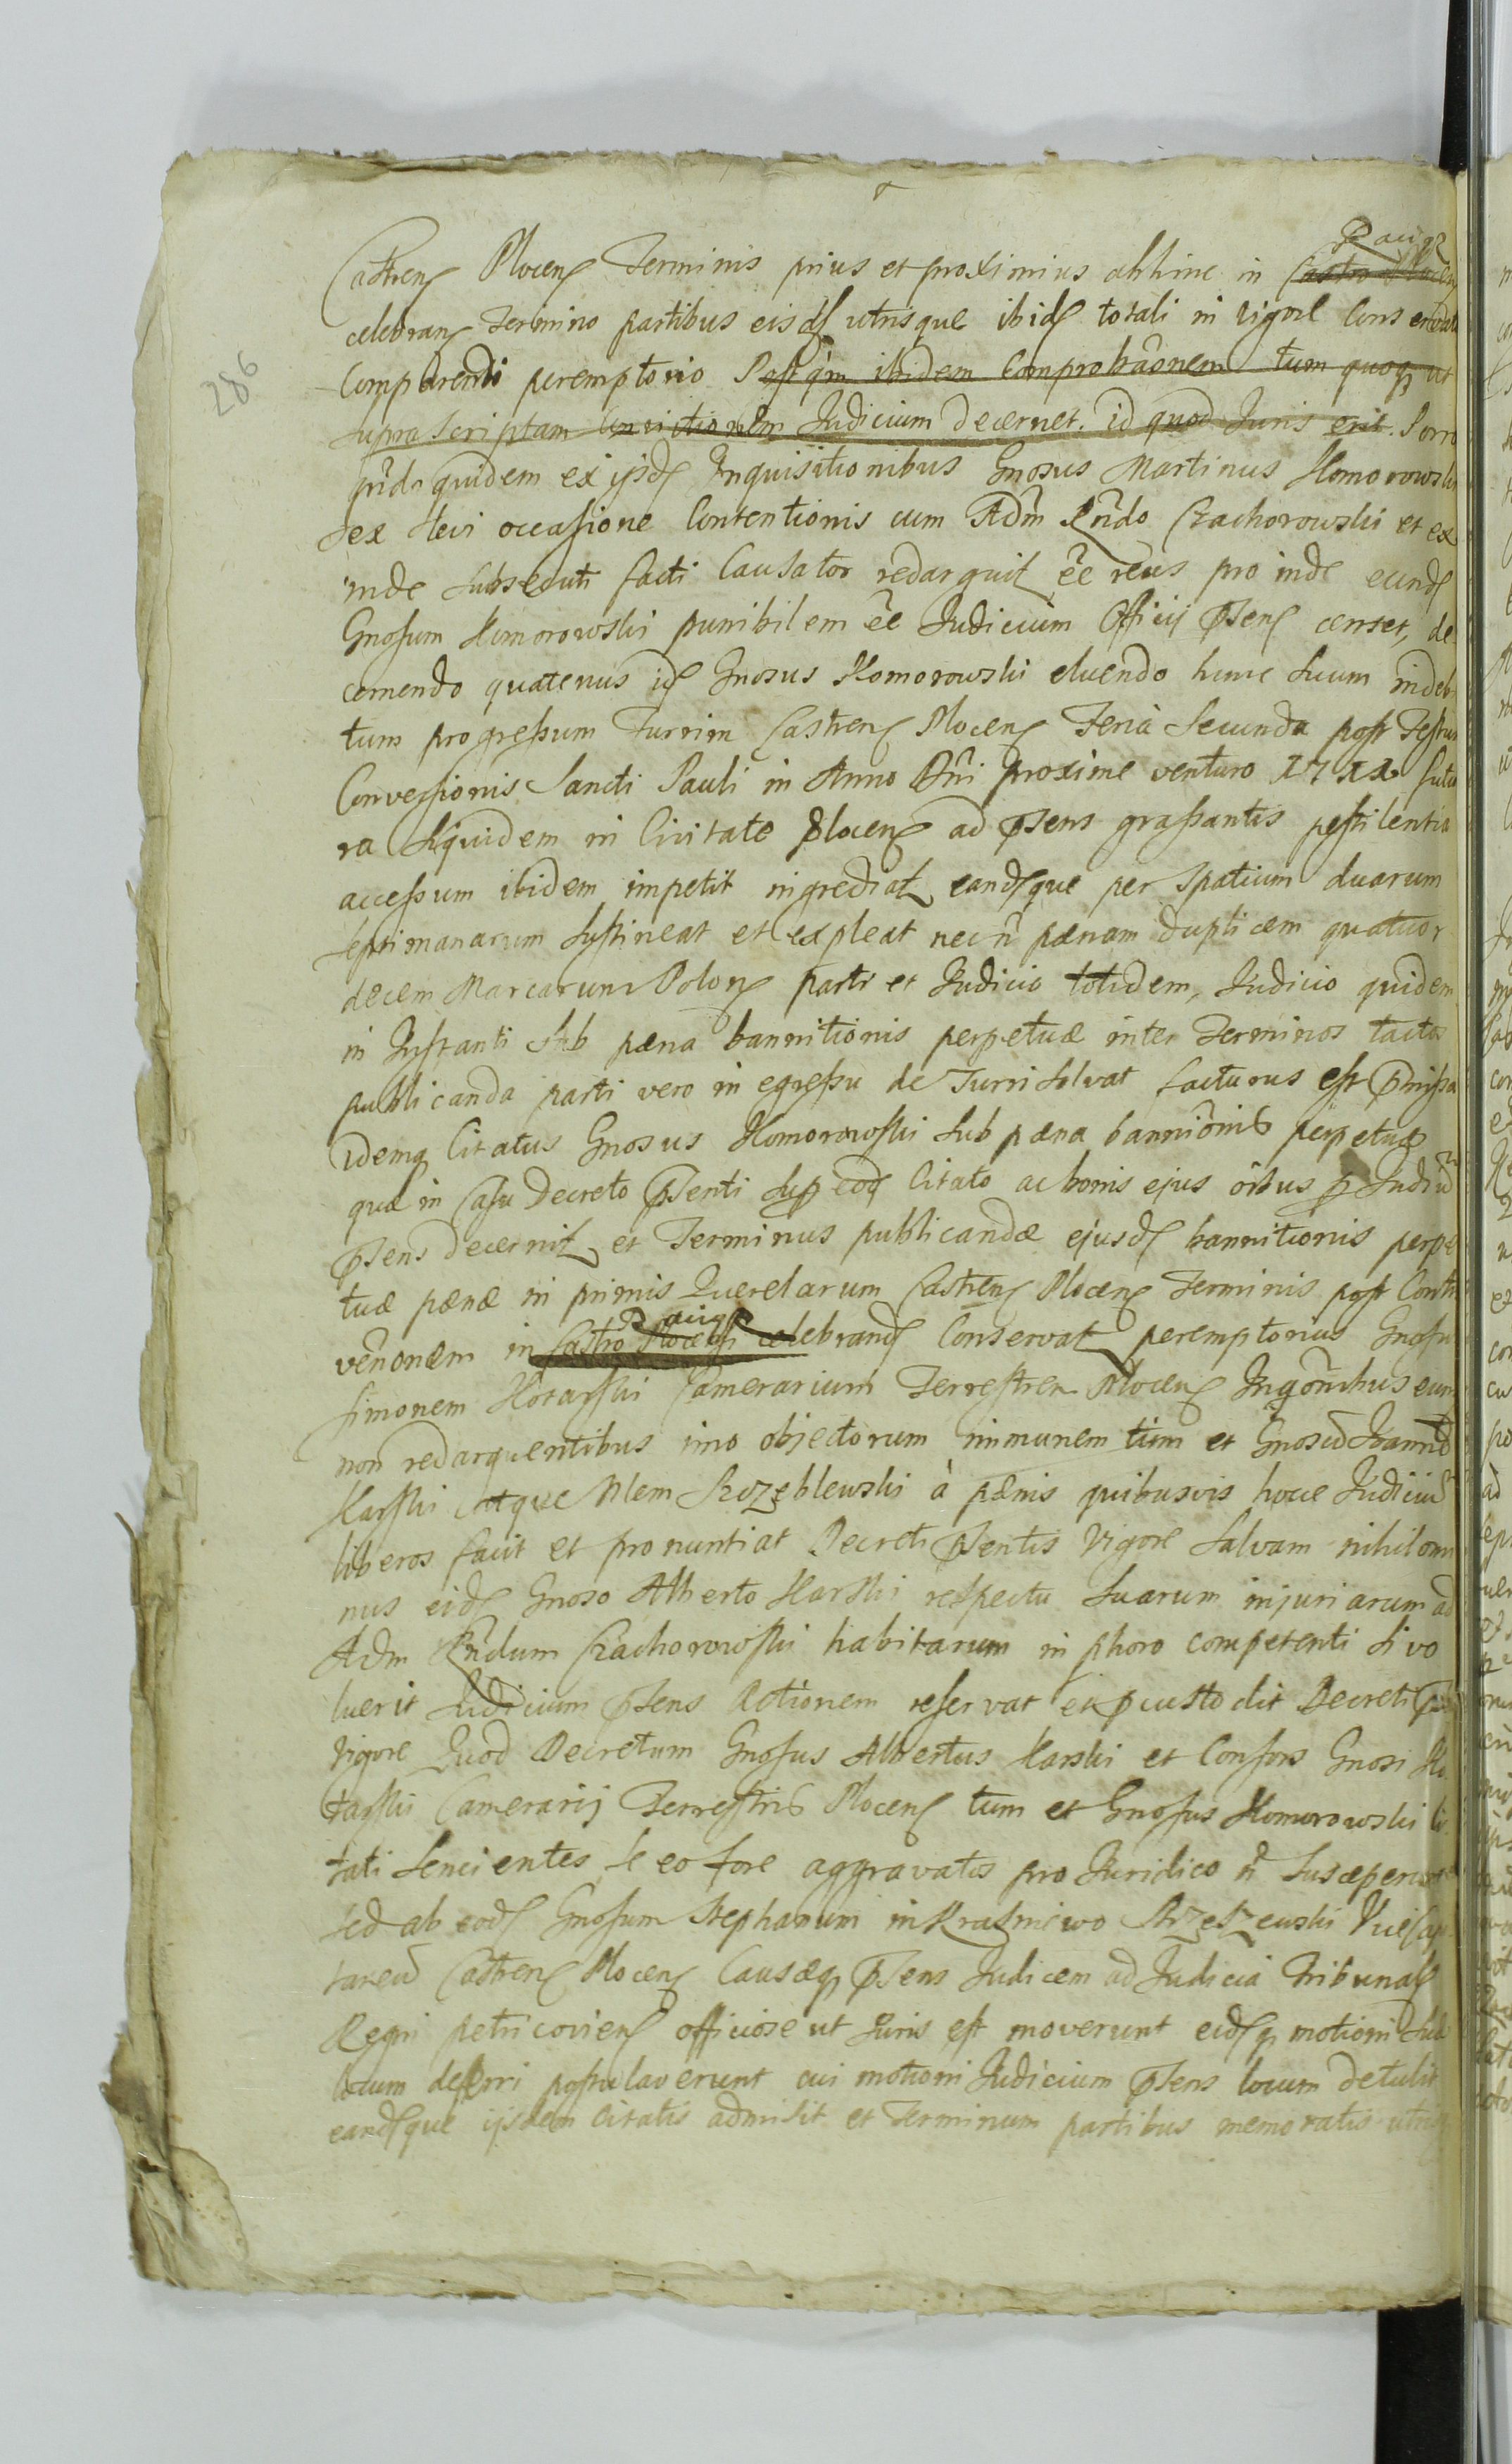 286
Castren Plocen Terminis prius et proximius abhinc in Castro Plocen
celebran Termino partibus eisd utrisque ibid totali in vigore
Comparendi peremptorio Post qm ibidem Comprobaonem tum quoq ut
supra scriptam Convictionem Judicium decernet. id quod Juris erit. Porro
quidem ex ijsd Inquisitionibus Gnosus Martinus Homorowski
sex occasione Contentionis cum Adm Rndo Czachorowski et ex
inde subsecuti facti Causator redarguit ee reus pro inde eund
Gnosum Homorowski punibilem ee Judicium Officij psens censet, de
cernendo quatenus id Gnosus Homorowski eluendo hunc suum indebi
tum progressum Turrim Castren Plocen Feria Secunda post Festum
Conversionis Sancti Pauli in Anno Dni proxime venturo futu
ra siquidem in Civitate Plocen ad psens grassantis pestilentia
accessum ibidem impetit ingrediat eandque per spatium duarum
septimanarum sustineat et expleat nec n pænam duplicem quatuor
decem Marcarum Polon parti et Judicio totidem, Judicio quidem
in Instanti sub pæna bannitionis perpetuæ inter Terminos tactos
publicanda parti vero in egressu de Turri solvat facturus est pmissa
idemq Citatus Gnosus Homorowski sub pæna bannionis perpetuæ
quæ in Casu Decreto psenti sup eod Citato ac bonis ejus oibus p Judiu
psens decernit et Terminus publicandæ ejusd bannitionis perpe
tuæ pænæ in primis Querelarum Castren Plocen Terminis post Contra
venonem in Castro Plocen celebrand Conservat peremptorius Gnosu
Simonem Kotarski Camerarium Terrestrem Plocen eum
non redarguentibus imo objectorum immunem tum et Gnosu Joanne
Karski atque Nlem à pænis quibusvis hocce Judiciu
liberos facit et pronuntiat Decreti psentis vigore Salvam nihilomi
nus eid Gnoso Alberto Karski respectu suarum injuriarum ad
Adm Rndum Czachorowski habitarum in phoro competenti si vo
luerit Judicium psens Actionem reservat et pcustodit Decreti
vigore Quod Decretum Gnosus Albertus Karski et Consors Gnosi Ko
tarski Camerarij Terrestris Plocen tum et Gnosus Homorowski Ci
tati sencientes se eo fore aggravatos pro Juridico n susceperunt
sed ab eod Gnosum Stephanum in Krasniewo
taneu Castren Plocen Causæq psens Judicem ad Judicia Tribunal
Regni petricovien officiose ut Juris est moverunt eidq motioni suæ
locum deferri postulaverunt cui motioni Judicium psens locum detulit
eandque ijsdem Citatis admisit et Terminum partibus memoratis utrisq